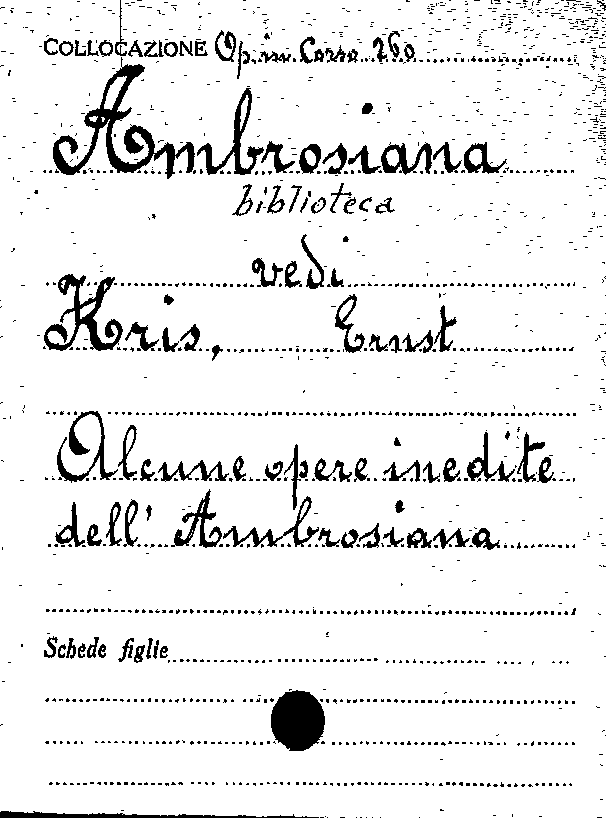 COLLOCAZIONE Op. in Corso 260
Ambrosiana
biblioteca
vedi
Kris, Ernst
Alcune opere inedite
dell' Ambrosiana
Schede figlie